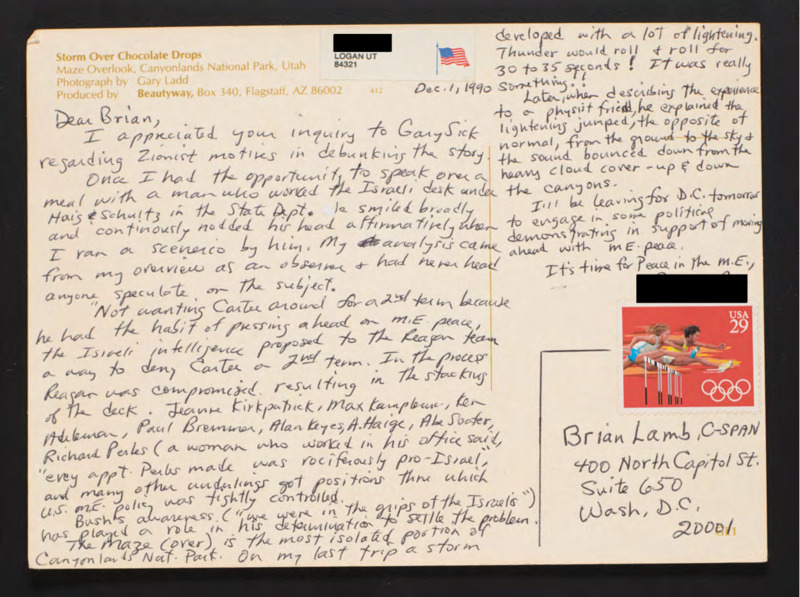 Storm Over Chocolate Drops
Maze Overlook, Canyonlands National Park, Utah
Photograph by Gary Ladd
Produced by Beautyway, Box 340, Flagstaff, AZ 86002 412
LOGAN UT
84321
Dec. 1, 1990
Dear Brian,
I appreciated your inquiry to Gary Sick
regarding Zionist motives in debunking the story.
Once I had the opportunity to speak over a
meal with a man who worked the Israeli desk under
Haig & Schultz in the State Dept. He smiled broadly
and continously nodded his head affirmatively when
I ran a scenerio by him. My analysis came
from my overview as an observer & had never head
anyone speculate on the subject.
"Not wanting Carter around for a 2nd term because
he had the habit of pressing ahead on M.E. peace,
the Israeli intelligence proposed to the Reagan team
a way to deny Carter a 2nd term. In the process
Reagan was compromized resulting in the stacking
of the deck. Jeanne Kirkpatrick, Max Kampleman, Ken
Adelman, Paul Bremmer, Alan Keyes, A. Haige, Abe Sofer,
Richard Perles (a woman who worked in his office said,
"evey appt. Perles made was rociferously pro-Israel,"
and many other underlings got positions thru which
U.S. M.E. policy was tightly controlled.
Bush's awareness. ("we were in the grips of the Israelis")
has played a role in his determination to settle the problem.
The Maze (over) is the most isolated portion of
Canyonlands Nat. Park. On my last trip a storm
developed with a lot of lightening.
Thunder would roll & roll for
30 to 35 seconds! It was really
something!!
Later, when describing the experience
to a physist fried, he explained the
lightening jumped, the opposite of
normal, from the ground to the sky &
the sound bounced down from the
heavy cloud cover - up & down
the canyons.
I'll be leaving for D.C. tomorrow
to engage in some political
demonstrating in support of moving
ahead with M.E. peace.
It's time for Peace in the M.E.,
USA
29
Brian Lamb, C-SPAN
400 North Capitol St.
Suite 650
Wash, D.C.
20001